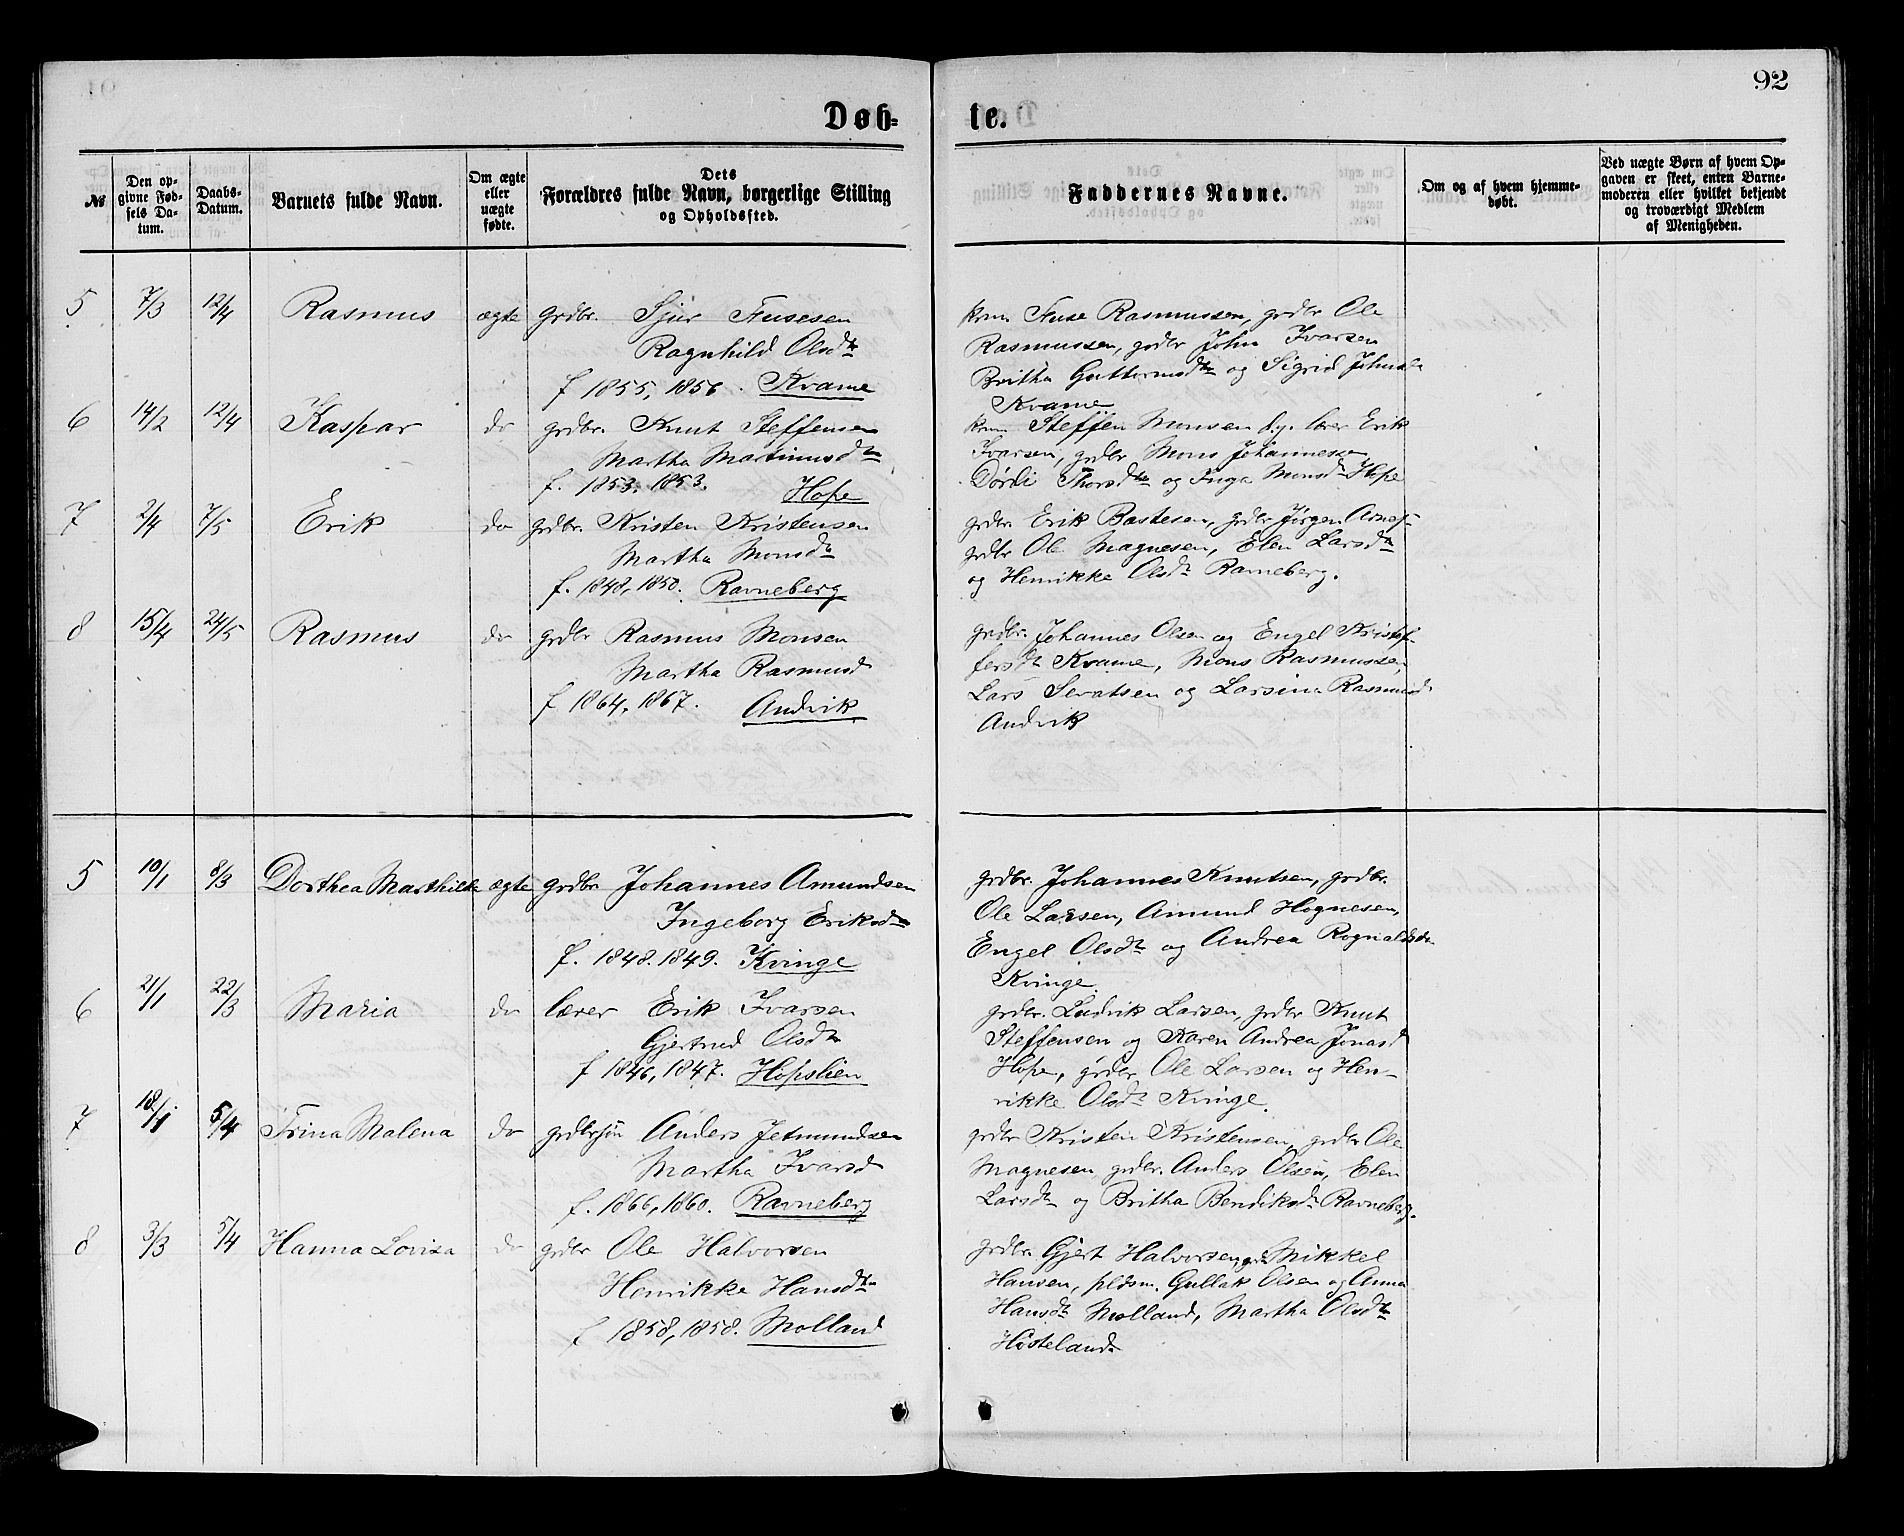 92
Døb- te.
№
Den opgivne Fødsels Datum.
Daabs-Datum.
Barnets fulde Navn.
Om ægte eller uægte fødte.
Dets Forældres fulde Navn, borgerlige Stilling og Opholdssted.
Faddernes Navne.
Om og af hvem hjemmedøbt.
Ved uægte Børn af hvem Opgaven er skeet, enten Barnemoderen eller hvilket bekjendt og troværdigt Medlem af Menigheden.
5 7/3 12/4 Rasmus ægte grdbr. Sjur Fusesen
Ragnhild Olsdtr
f 1855, 1856. Kvame
krm Fuse Rasmussen, grdbr Ole
Rasmussen, grdbr John Ivarsen
Britha Guttormsdtr og Sigrid Johnsdr
Kvame
6 14/2 12/4 Kaspar do grdbr. Knut Steffensen
Martha Martinusdtr
f. 1853, 1853. Hope
krm Steffen Monsen lærer Erik
Ivarsen, grdbr Mons Johannessen
Dordi Thorsdtr og Inga Monsdr Hope
7 2/4 7/5 Erik do grdbr. Kristen Kristensen
Martha Monsdtr
f. 1848, 1850. Ravneberg
grdbr. Erik Bastesen, grdbr Jørgen Arnes.
grdbr Ole Magnesen, Elen Larsdtr
og Henrikke Olsdtr Ravneberg.
8 15/4 24/5 Rasmus do grdbr Rasmus Monsen
Martha Rasmusd
f 1864, 1867. Andvik
grdbr. Johannes Olsen og Engel Kristof-
fersdtr Kvame, Mons Rasmussen,
Lars Sevatsen og Larsina Rasmusd
Andvik
5 10/1 8/3 Dorthea Marthilde ægte grdbr Johannes Amundsen
Ingeborg Eriksdtr
f. 1848. 1849. Kvinge
grdbr. Johannes Knutsen, grdbr.
Ole Larsen, Amund Hognesen,
Engel Olsdtr og Andrea Rognaldsdr
Kvinge.
6 21/1 22/3 Maria do lærer Erik Ivarsen
Gjertrud Olsdtr
f 1846, 1847. Hopslien
grdbr. Ludvik Larsen, grdbr Knut
Steffensen og Karen Andrea Jonasd
Hope, grdbr Ole Larsen og Hen-
rikke Olsdtr Kvinge.
7 18/1 5/4 Trina Malena do grdbrsøn Anders Jetmundsen
Martha Ivarsd
f. 1866, 1860. Ravneberg
grdbr Kristen Kristensen, grdbr Ole
Magnesen, grdbr. Anders Olsen, Elen
Larsdtr og Britha Bendiksdtr Ravneberg.
8 3/3 5/4 Hanna Lovisa do grdbr Ole Halvorsen
Henrikke Hansdtr
f 1858, 1858. Molland
grdbr. Gjert Halvorsen, grdbr Mikkel
Hansen, pldsm. Gullak Olsen og Anna
Hansdtr Molland, Martha Olsdtr
Høsteland